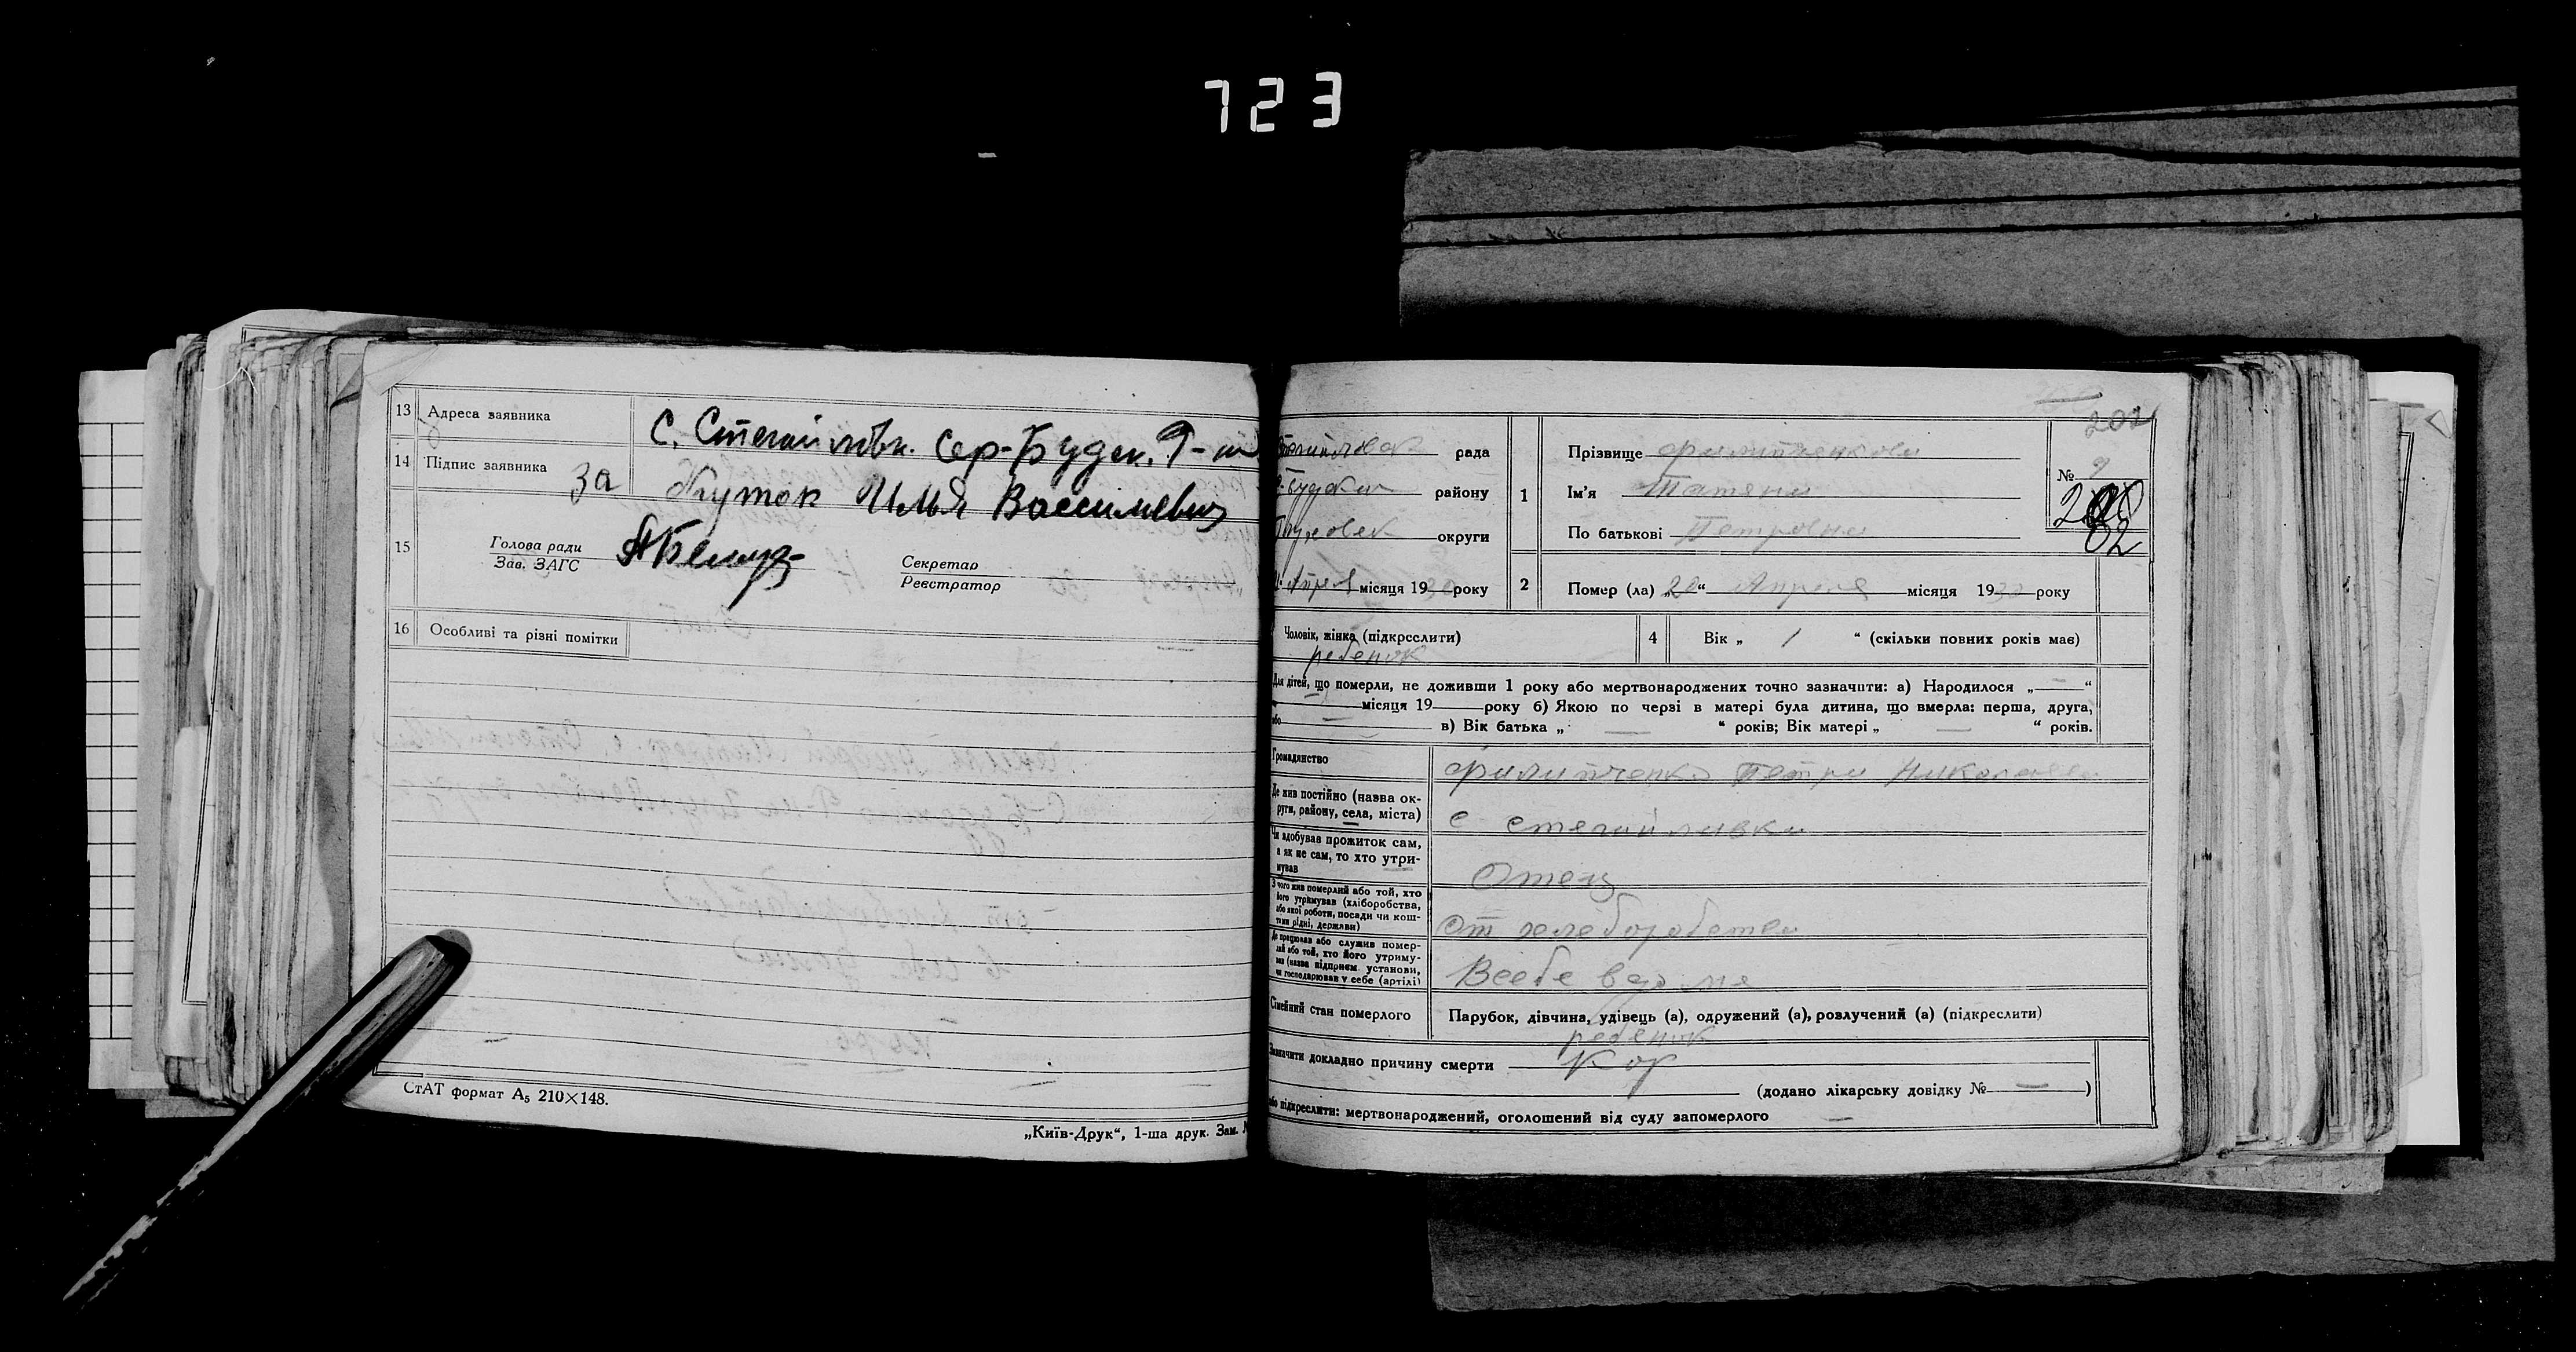 723
13 Адреса заявника С. Стегайловк. Сер-Будск. Р-на
14 Підпис заявника За Куток Илья Вассилевич
15 Голова ради
Зав. ЗАГС
Секретар
Реєстратор
16 Особливі та різні помітки
СтАТ формат А₅ 210×148.
„Київ-Друк“, 1-ша друк. Зам.
202
рада
району
округи
Апреля місяця 1930 року
1
Прізвище Филипченкова
Ім'я Татяна
По батькові Петровна
№ 9
202
2 Помер (ла) „20“ Апреля місяця 1930 року
Чоловік, жінка (підкреслити)
ребенок
4 Вік „ 1 “ (скільки повних років має)
Для дітей, що померли, не доживши 1 року або мертвонароджених точно зазначити: а) Народилося „—“
— місяця 19 року б) Якою по черзі в матері була дитина, що вмерла: перша, друга,
або — в) Вік батька „ — “ років; Вік матері „ — “ років.
Громадянство Филипченко Петра Николаева
Де жив постійно (назва ок-
руги, району, села, міста) с стегайловка
Чи здобував прожиток сам,
а як не сам, то хто утри-
мував Отец
З чого жив померлий або той, хто
його утримував (хліборобства,
або якої роботи, посади чи кош-
тами рідні, держави) От хлеборобства
Де працював або служив помер-
лий або той, хто його утриму-
вав (назва підприєм установи,
чи господарював у себе (артілі)
Сімейний стан померлого Парубок, дівчина, удівець (а), одружений (а), розлучений (а) (підкреслити)
ребенок
Зазначити докладно причину смерти Кор
(додано лікарську довідку № — )
або підкреслити: мертвонароджений, оголошений від суду запомерлого —